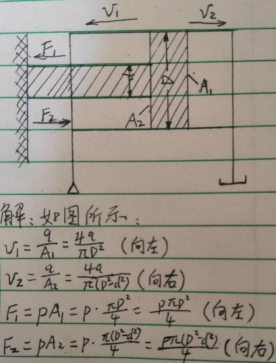 V₁ V₂
F₁
d D A₁
F₂ A₂
解:如图所示:
V₁ = q/A₁ = 4q/πD² (向左)
V₂ = q/A₂ = 4q/π(D²-d²) (向右)
F₁ = pA₁ = p·πD²/4 = pπD²/4 (向左)
F₂ = pA₂ = p·π(D²-d²)/4 = pπ(D²-d²)/4 (向右)